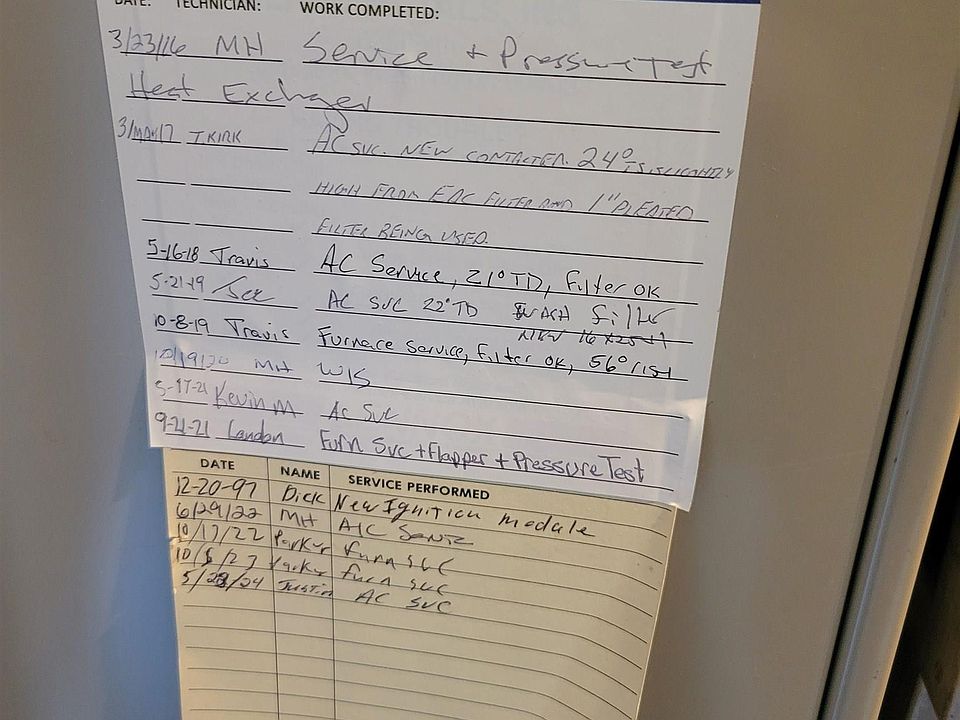 DATE: TECHNICIAN: WORK COMPLETED:
3/23/16 MH Service + Pressure Test
Heat Exchanger
3/MAY/17 T.KIRK AC SVC. NEW CONTACTER. 24° TS. SLIGHTLY
HIGH FROM EAC FILTER AND 1" PLEATED
FILTER BEING USED.
5-16-18 Travis AC Service, 21° TD, Filter OK
5-21-19 AC SVC 22° TD WASH filter
16x25x1
10-8-19 Travis Furnace Service, Filter OK, 56° rise
10/19/20 MH W/S
5-17-21 Kevin M AC SVC
9-21-21 Landon Furn Svc + Flapper + Pressure Test
DATE NAME SERVICE PERFORMED
12-20-97 Dick New Ignition module
6/29/22 MH A/C Service
10/17/22 Parker furn svc
10/5/23 Parker furn svc
5/23/24 Justin AC SVC